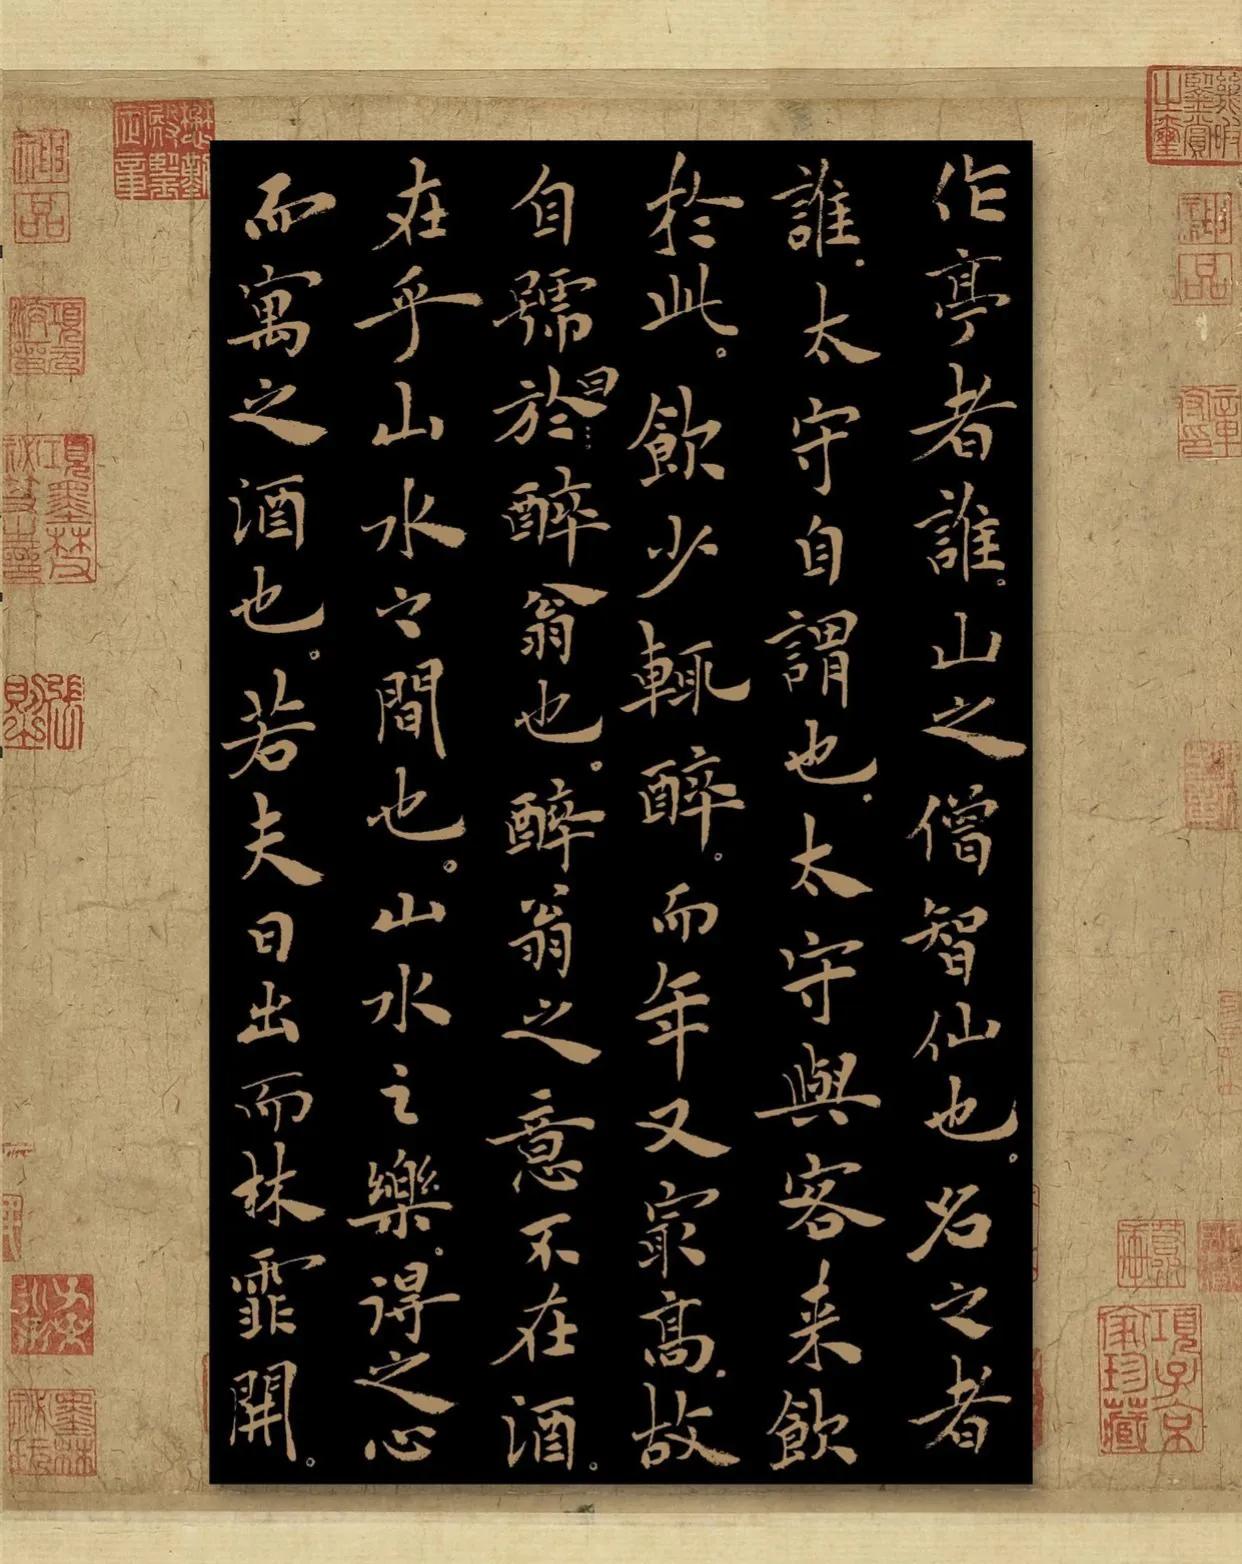 作亭者誰。山之僧智仙也。名之者
誰。太守自謂也。太守與客来飲
於此。飲少輒醉。而年又冣高。故
自號於曰醉翁也。醉翁之意不在酒。
在乎山水之間也。山水之樂。得之心
而寓之酒也。若夫日出而林霏開。
神品
項子京家珍藏
神品